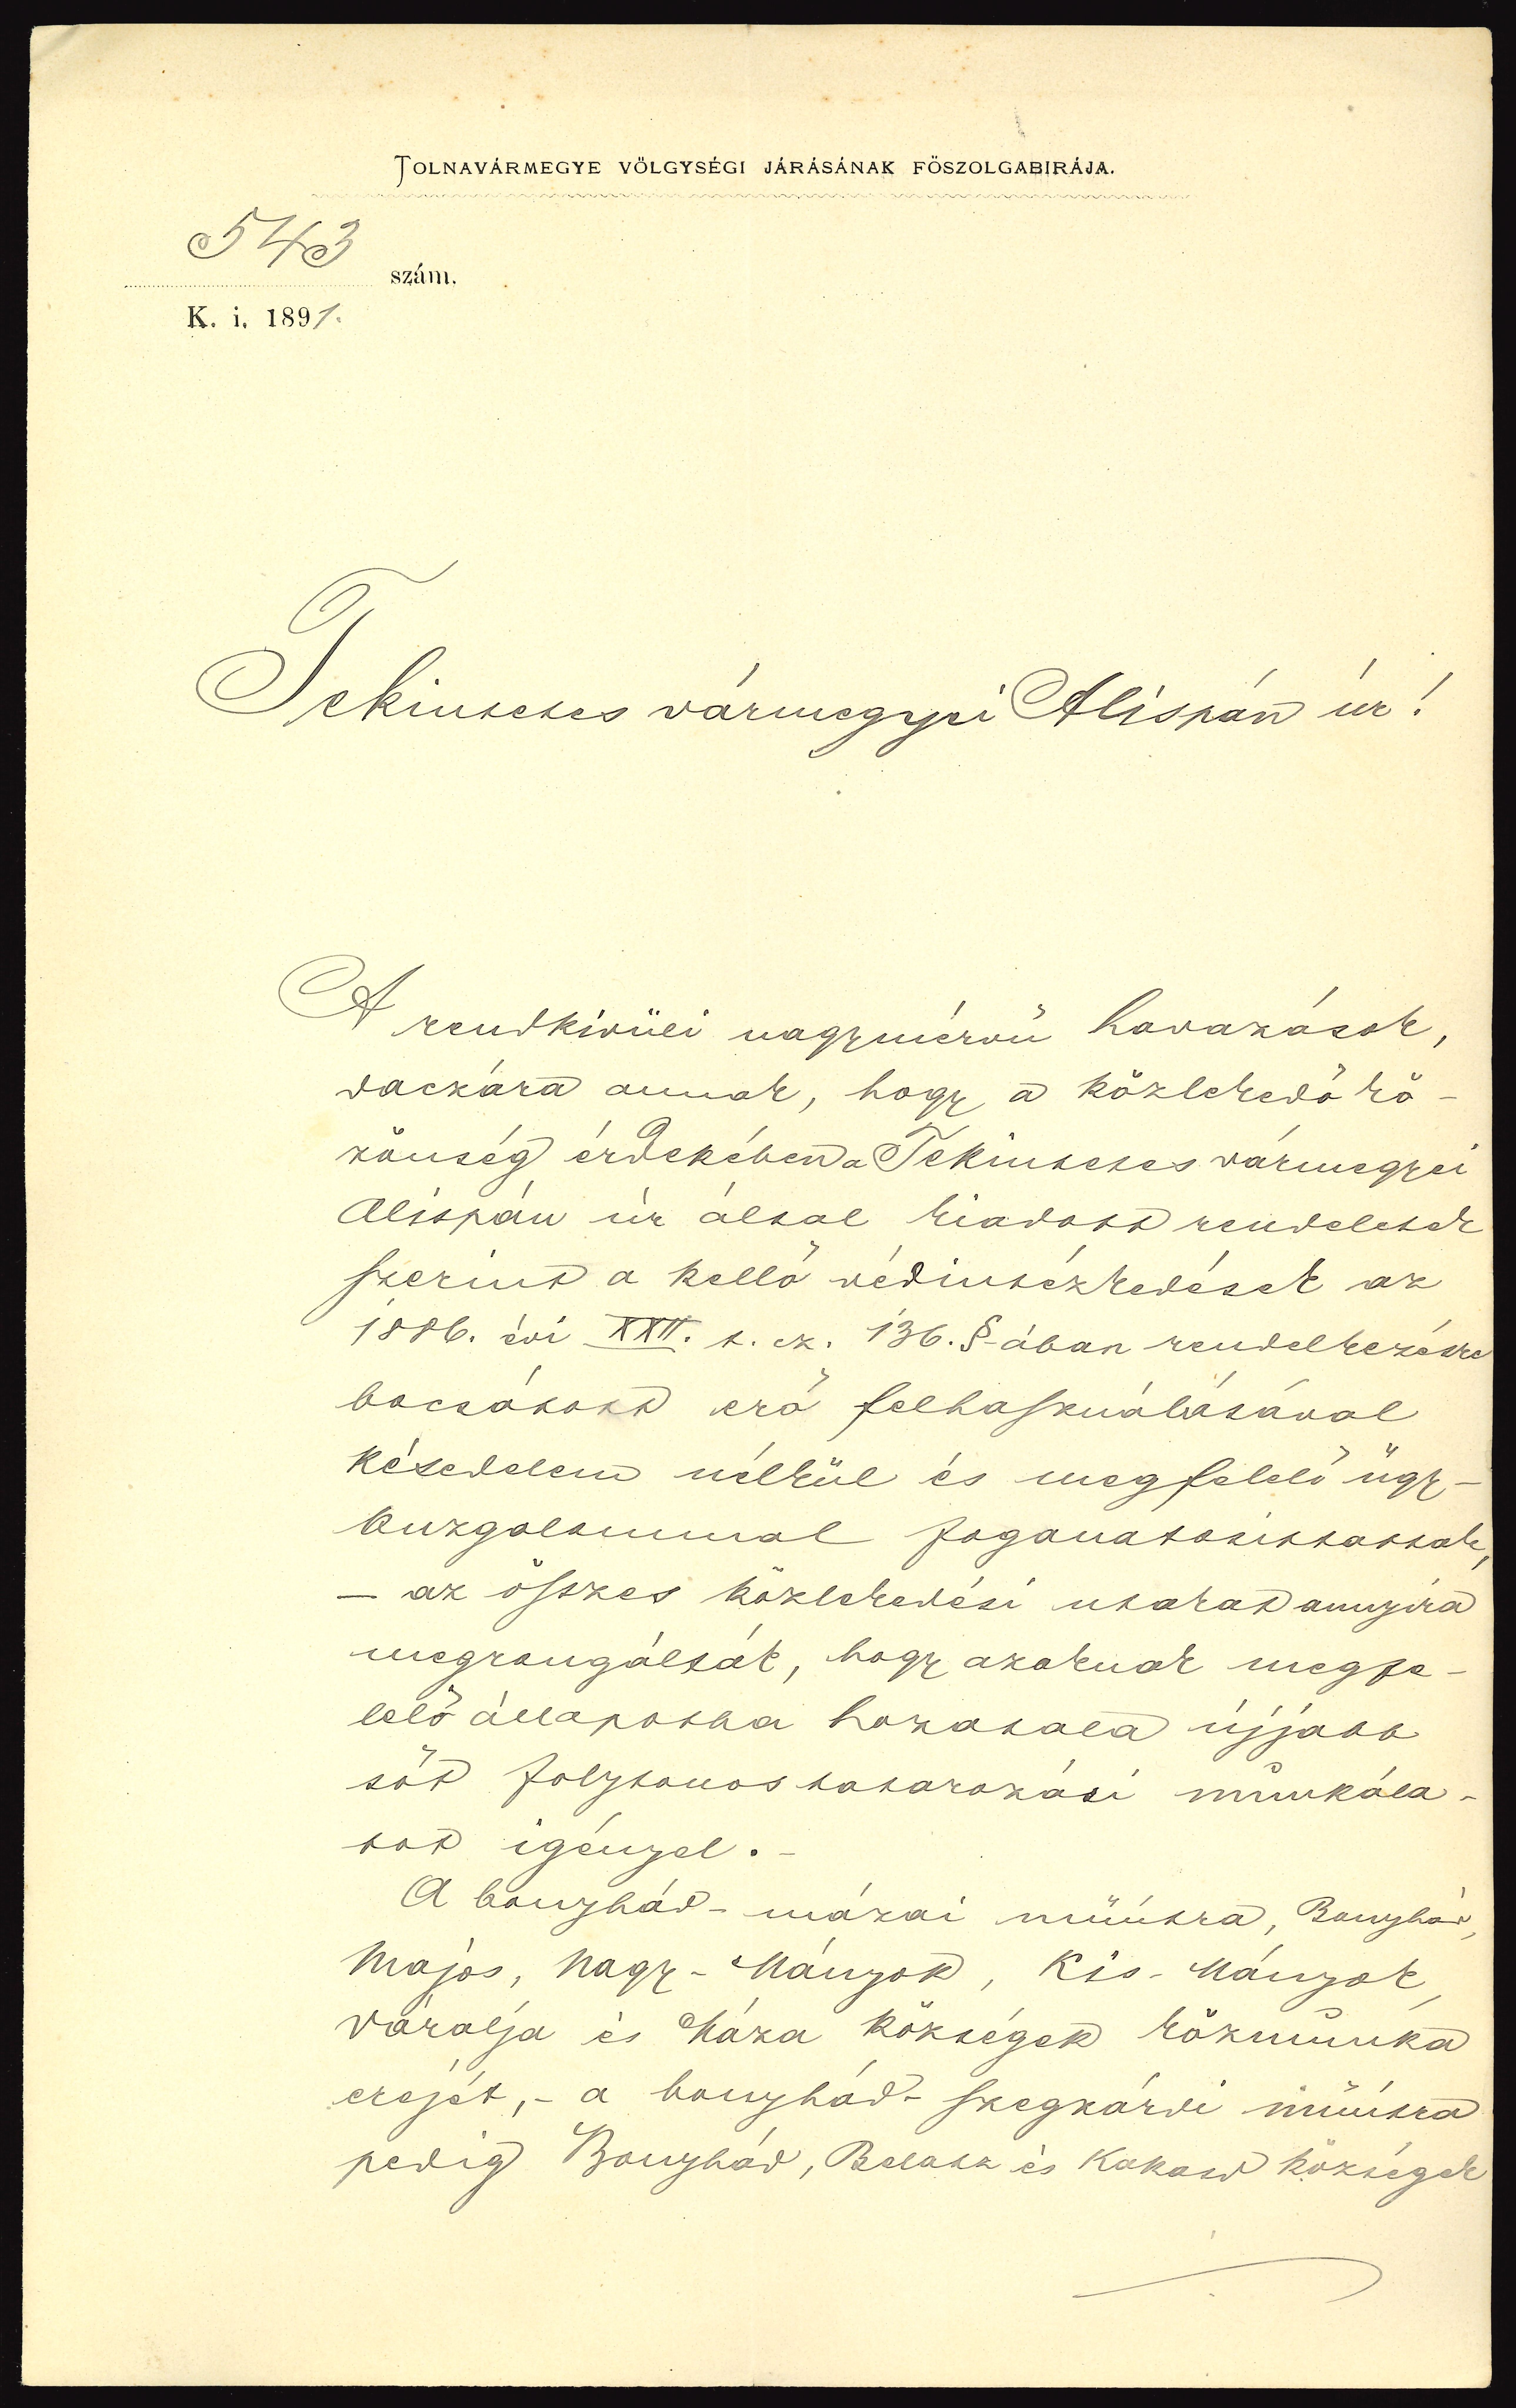 TOLNAVÁRMEGYE VÖLGYSÉGI JÁRÁSÁNAK FÖSZOLGABIRÁJA.
543 szám.
K. i. 1891.
Tekintetes vármegyei Alispán úr!
A rendkivüli nagymérvü havazások,
daczára annak, hogy a közlekedő kö-
zönség érdekében a Tekintetes vármegyei
Alispán úr által kiadott rendeletek
szerint a kellő védintézkedések az
1886. évi XXII. t. cz. 136. §-ában rendelkezésre
bocsátott erő felhasználásával
késedelem nélkül és megfelelő ügy-
buzgalommal foganatosittattak,
- az összes közlekedési utakat annyira
megrongálták, hogy azoknak megfe-
lelő állapotba hozatala újjabb
sőt folytonos tatarozási munkála-
tot igényel. -
A bonyhád-mázai műútra, Bonyhád,
Majos, Nagy-Mányok, Kis-Mányok,
Váralja és Máza községek közmunka
erejét, - a bonyhád-szegzárdi műútra
pedig Bonyhád, Belatz és Kakasd községek